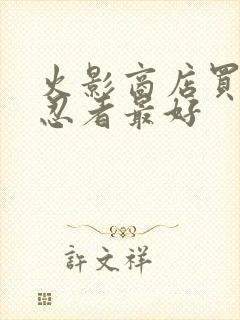 火影商店買
忍者最好
許文祥